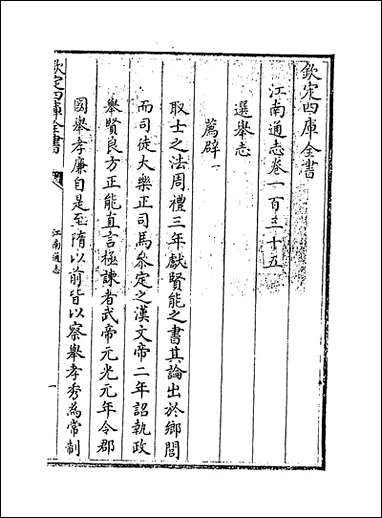 欽定四庫全書
江南通志卷一百三十五
選舉志
薦辟一
取士之法周禮三年獻賢能之書其論出於鄉閭
而司徒大樂正司馬參定之漢文帝二年詔執政
舉賢良方正能直言極諫者武帝元光元年令郡
國舉孝廉自是至隋以前皆以察舉孝秀為常制
欽定四庫全書
江南通志
一